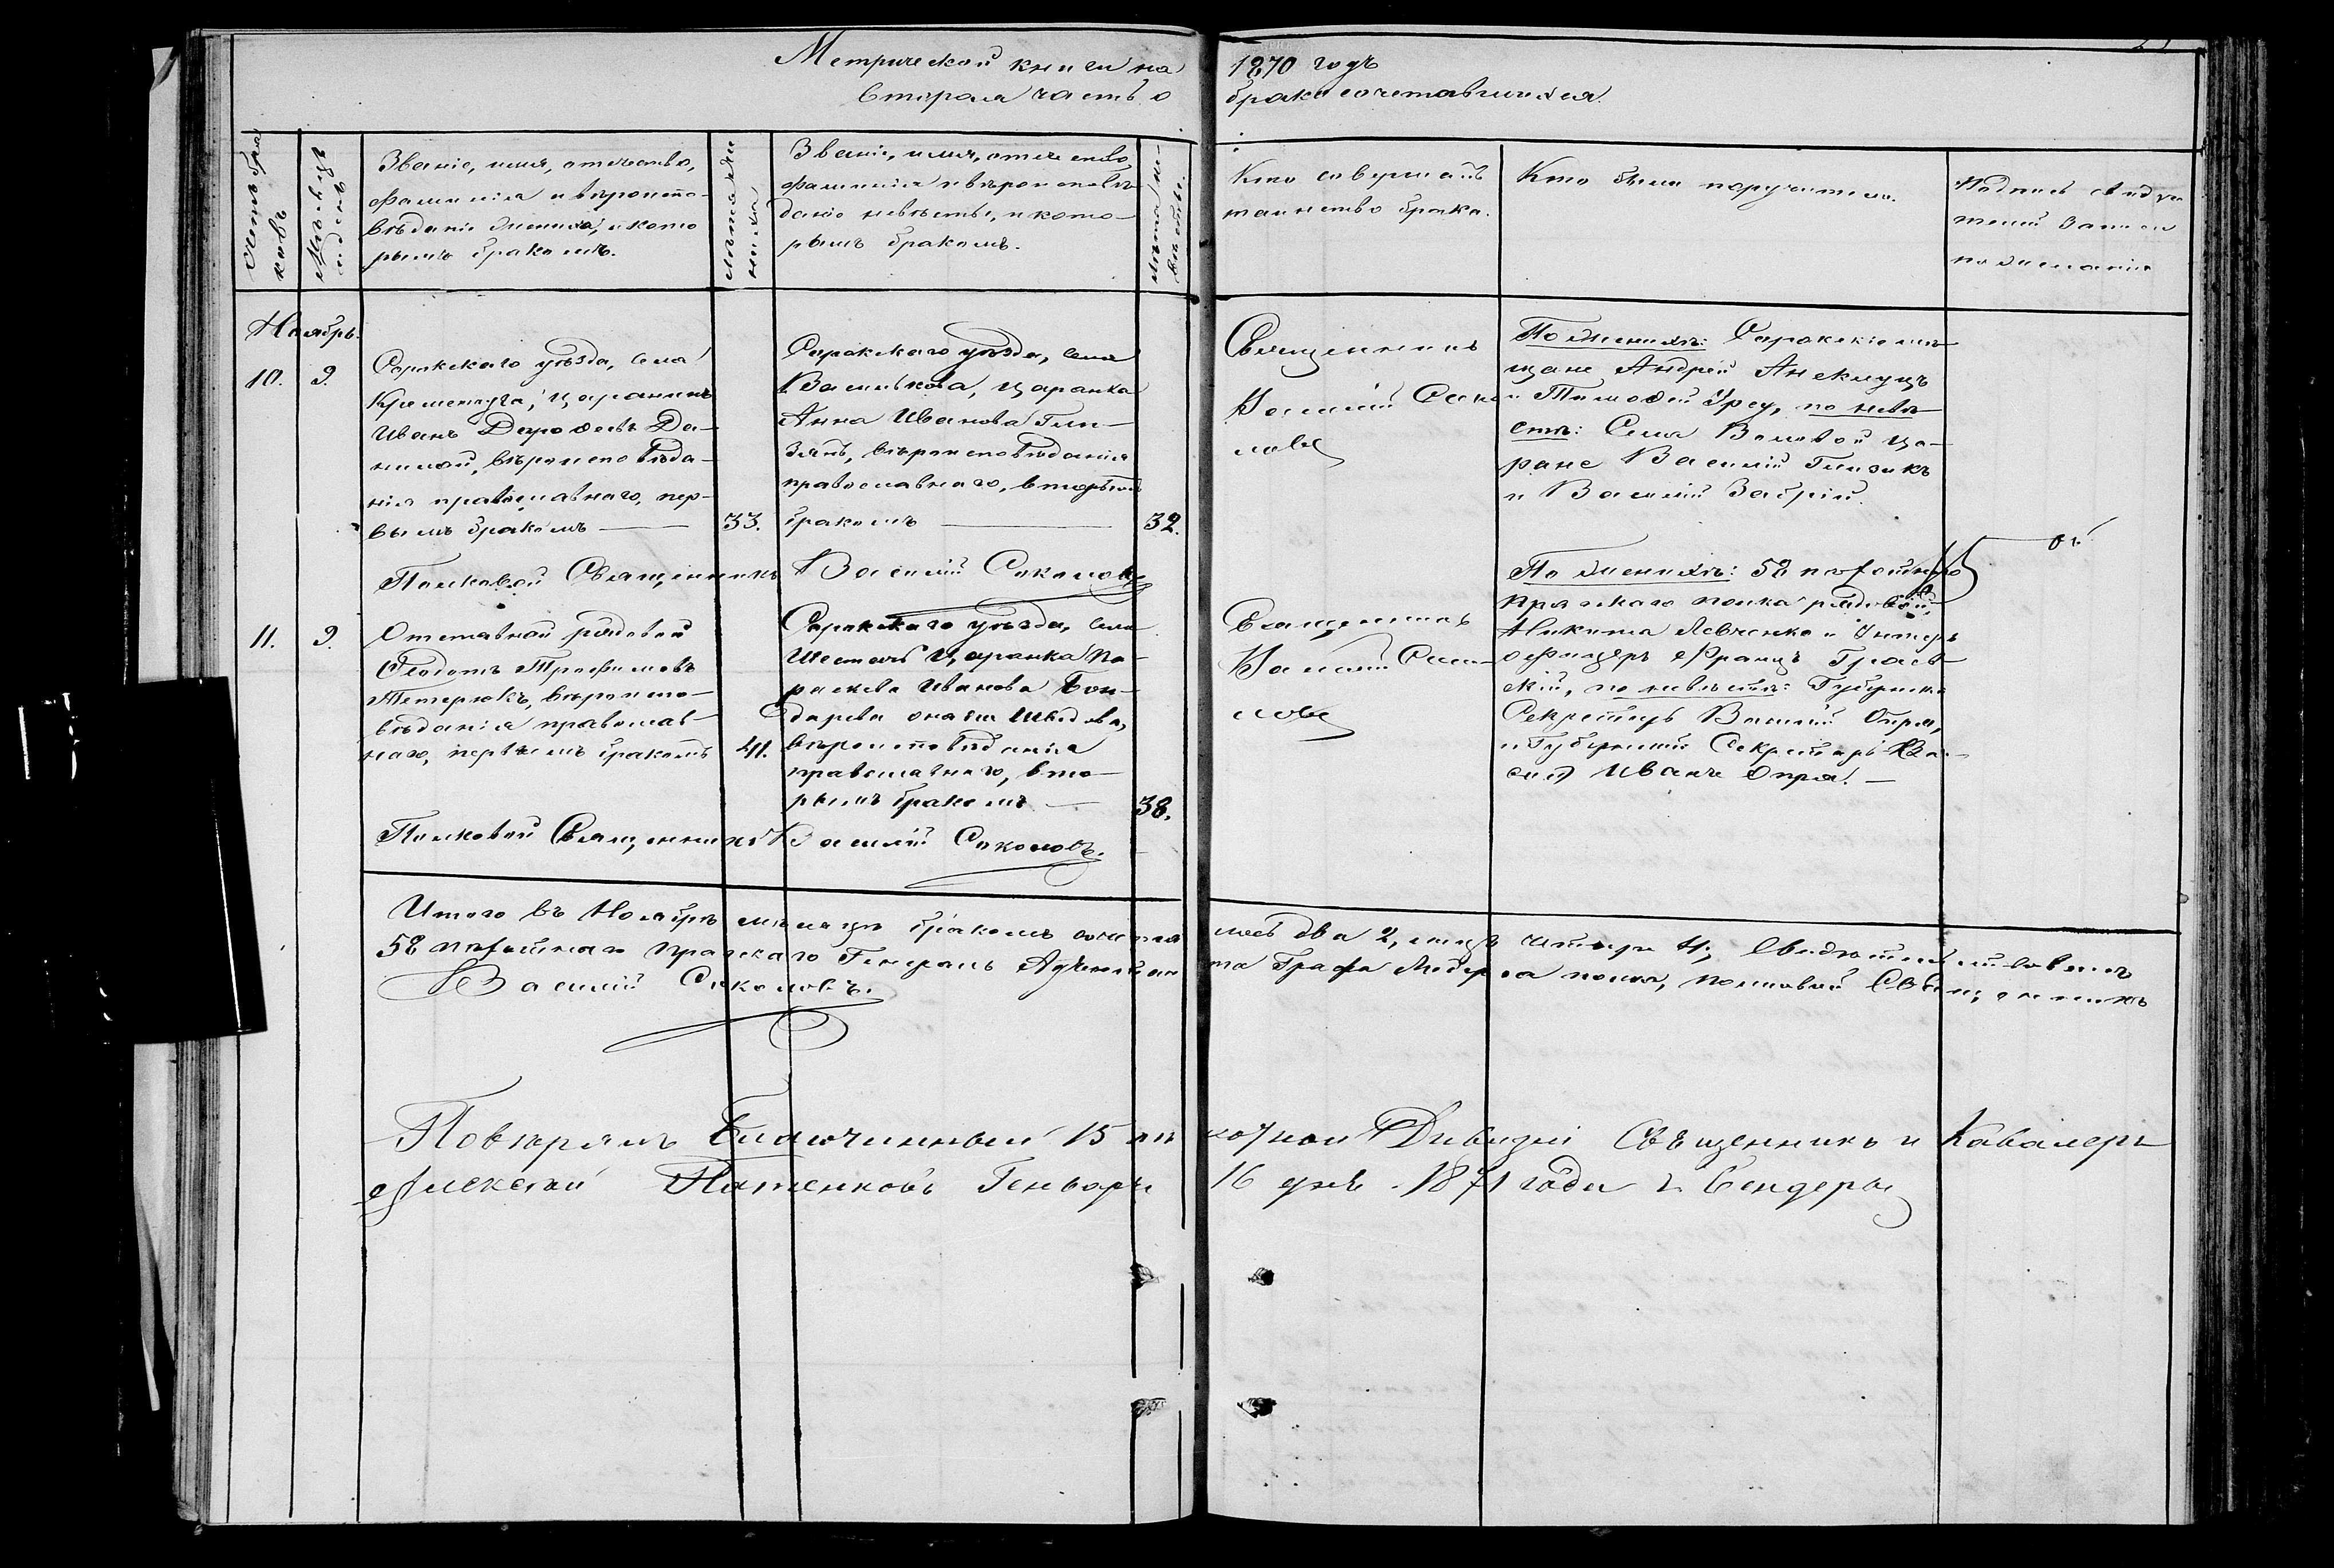 Метрической книги на 1870 годъ
Вторая часть о бракосочетавшихся.
Счетъ бра
ковъ
Мѣсяцъ
и день
Званіе, имя, отечество,
фамилія и вѣроиспо-
вѣданіе жениха, и кото
рымъ бракомъ.
Лѣта же
ниха
Званіе, имя, отечество,
фамилія и вѣроисповѣ-
даніе невѣсты, и кото-
рымъ бракомъ.
Лѣта не-
вѣсты.
Кто совершалъ
таинство брака.
Кто были поручители.
Подпись свидѣ
телей записи
по желанію
Ноябрь.
10.
9.
Сорокскаго уѣзда, села
Кременчуга, царанинъ
Иванъ Дорофеевъ Да-
нилой, вѣроисповѣда-
нія православнаго, пер-
вымъ бракомъ
33.
Сорокскаго уѣзда, села
Василькова, царанка
Анна Иванова Гин-
вѣроисповѣданія
православнаго, вторымъ
бракомъ
32.
Священникъ
Василій Соко
ловъ
По женихѣ: Сорокскіе мѣ-
щане Андрей Анекуцъ
и Тимофей Урсу, по невѣ-
стѣ: Села Воловой ца-
ране Василій
и Василій
Полковой Священникъ Василій Соколовъ
11.
9.
Отставной рядовой
Феодотъ Трофимовъ
Тетерюкъ, вѣроиспо-
вѣданія православ-
наго, первымъ бракомъ
41.
Сорокскаго уѣзда, села
царанка Па-
раскева Иванова Бон-
дарева она же
вѣроисповѣданія
православнаго, вто-
рымъ бракомъ
38.
Священникъ
Василій Соко-
ловъ
По женихѣ: 58 пѣхотнаго
Прагскаго полка рядовой
Никита Левченко и Унтеръ
офицеръ Францъ
по невѣстѣ: Губернскій
Секретарь Василій Опря,
и Губернскій Секретарь
Иванъ Опря.
Полковой Священникъ Василій Соколовъ.
Итого въ Ноябрѣ мѣсяцѣ бракомъ сочета лось два 2, лицъ четыре 4; Свидѣтельствовалъ
58 пѣхотнаго Прагскаго Генералъ Адъютан та Графа Лидерса полка, полковой Священникъ
Василій Соколовъ.
Повѣрялъ Благочинный 15 пѣ хотной Дивизіи Священникъ и Кавалеръ
Алексѣй Генваря 16 дня 1871 года г. Бендеры